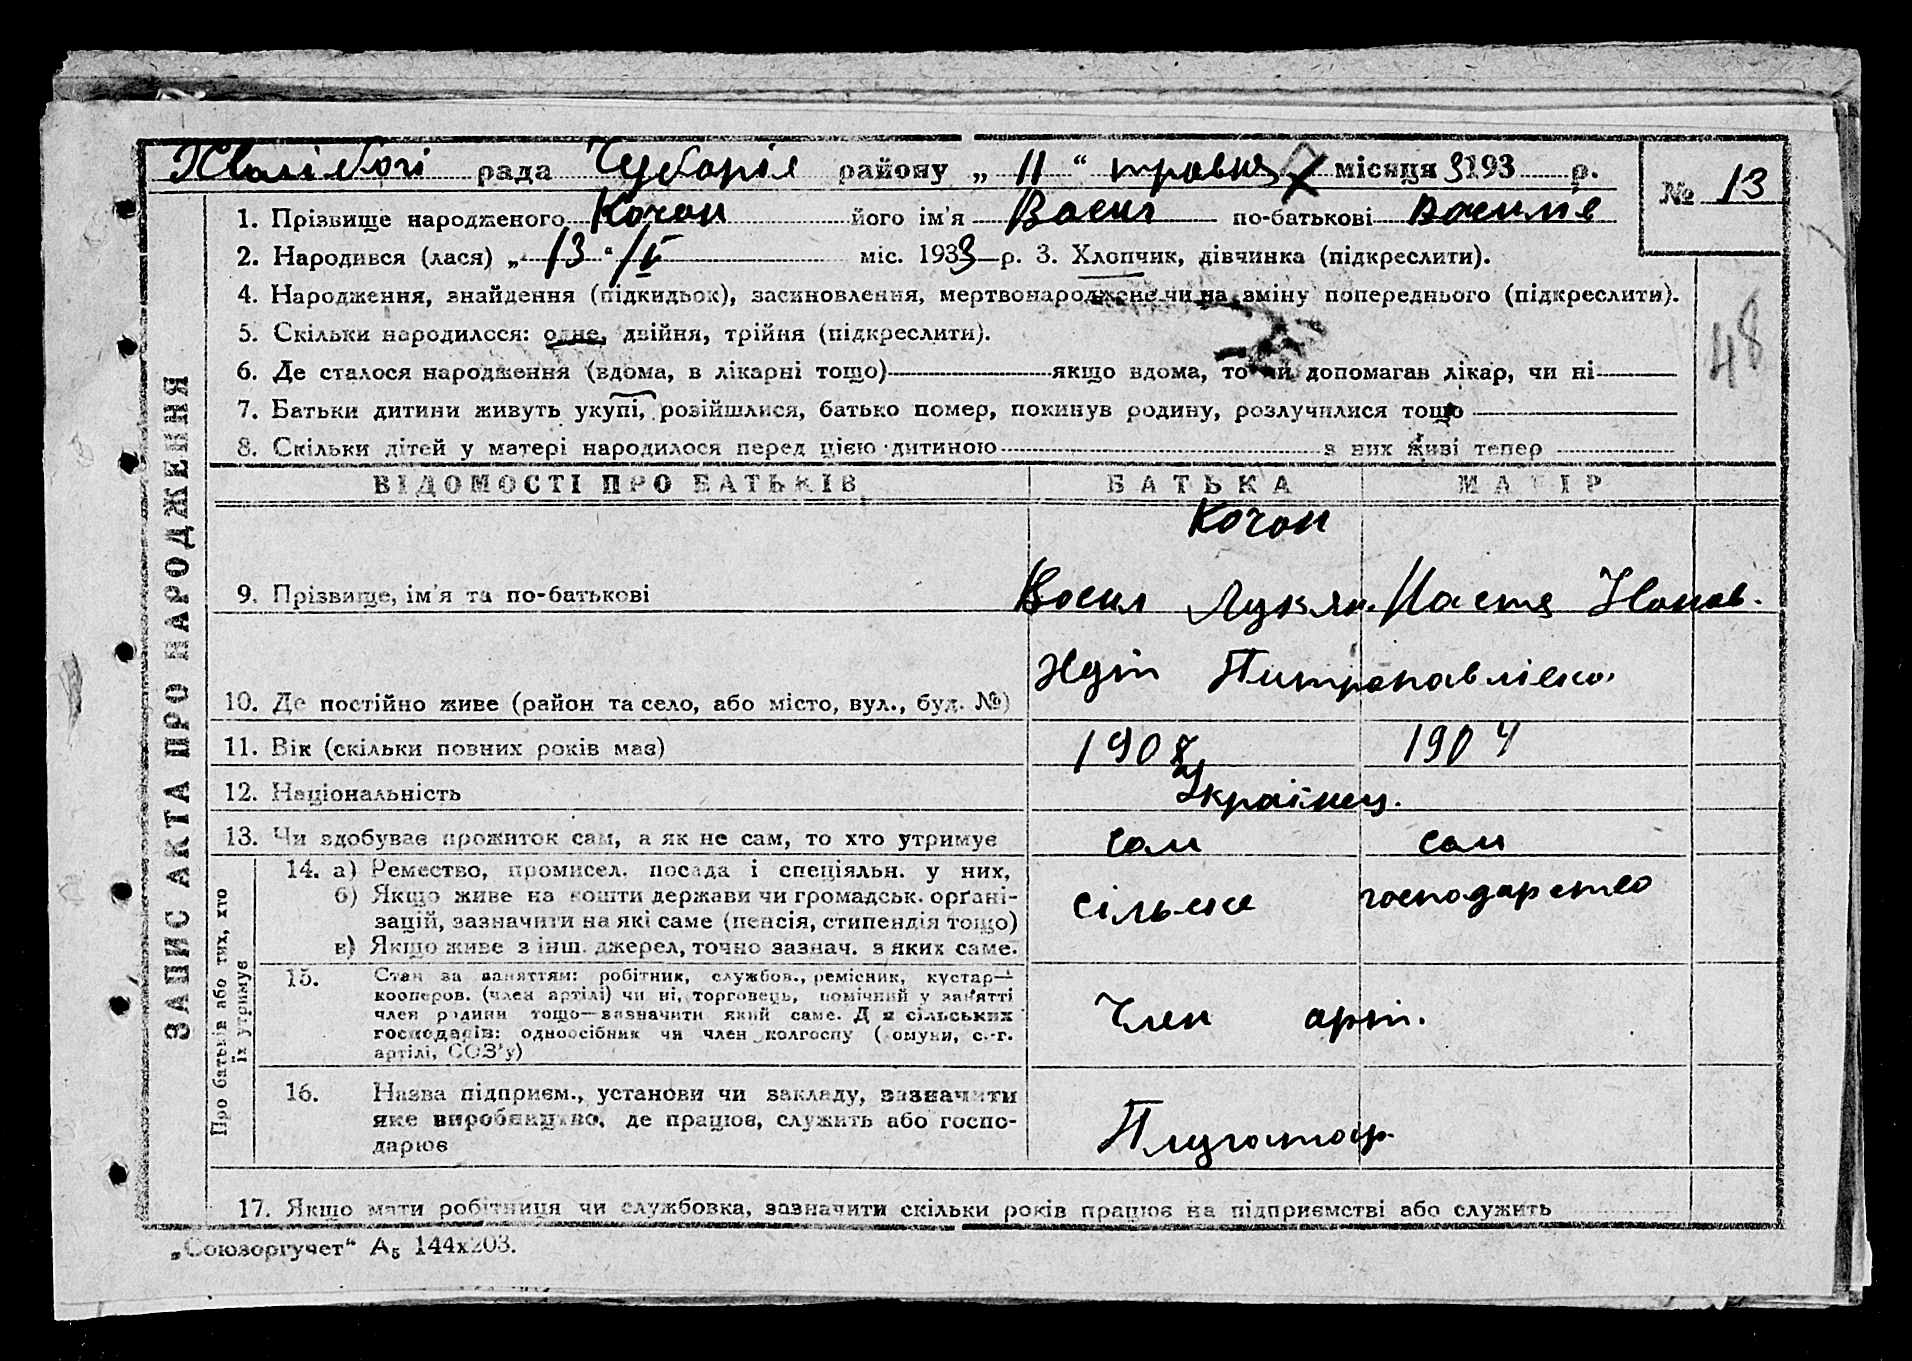 Хвалібогі рада Чубарів району „ 11 “ травня місяця 3193 р. № 13
1. Прізвище народженого Кочан його ім'я Васил по-батькові Василів
2. Народився (лася) „ 13 “ IV міс. 1933 р. 3. Хлопчик, дівчинка (підкреслити).
4. Народження, знайдення (підкидьок), засиновлення, мертвонароджене чи на зміну попереднього (підкреслити).
48
5. Скільки народилося: одне, двійня, трійня (підкреслити).
6. Де сталося народження (вдома, в лікарні тощо) якщо вдома, то чи допомагав лікар, чи ні
7. Батьки дитини живуть укупі, розійшлися, батько помер, покинув родину, розлучилися тощо
8. Скільки дітей у матері народилося перед цією дитиною з них живі тепер
ЗАПИС АКТА ПРО НАРОДЖЕННЯ
ВІДОМОСТІ ПРО БАТЬКІВ БАТЬКА МАТІР
Кочан
9. Прізвище, ім'я та по-батькові Васил Лукян. Настя Іванов.
10. Де постійно живе (район та село, або місто, вул., буд. №)
11. Вік (скільки повних років має) 1908 1904
12. Національність Українец.
13. Чи здобуває прожиток сам, а як не сам, то хто утримує сам сам
Про батьків або тих, хто їх утримує
14. а) Ремество, промисел, посада і спеціяльн. у них,
б) Якщо живе на кошти держави чи громадськ. орґані-
зацій, зазначити на які саме (пенсія, стипендія тощо) сільське господарство
в) Якщо живе з інш. джерел, точно зазнач. з яких саме.
15. Стан за заняттям: робітник, службов., ремісник, кустар—
кооперов. (член артілі) чи ні, торговець, помічний у занятті
член родини тощо—зазначити який саме. Для сільських
господарів: одноосібник чи член колгоспу (комуни, с.-г.
артілі, СОЗ'у) Член арт.
16. Назва підприєм., установи чи закладу, зазначити
яке виробництво, де працює, служить або госпо-
дарює Плугатар
17. Якщо мати робітниця чи службовка, зазначити скільки років працює на підприємстві або служить
„Союзоргучет“ А5 144х203.